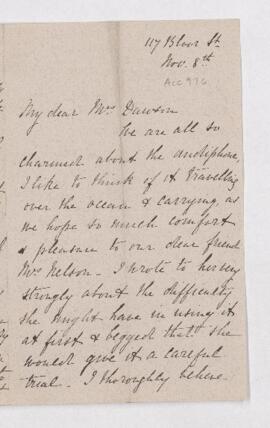 117 Bloor St.
Nov. 8th
Acc 976
My dear Mrs Dawson
We are all so
charmed about the audiphone,
I like to think of it travelling
over the ocean & carrying, as
we hope so much comfort
& pleasure to our dear friend
Mrs Nelson - I wrote to her very
strongly about the difficulty
she might have in using it
at first & begged that she
would give it a careful
trial - I thoroughly believe